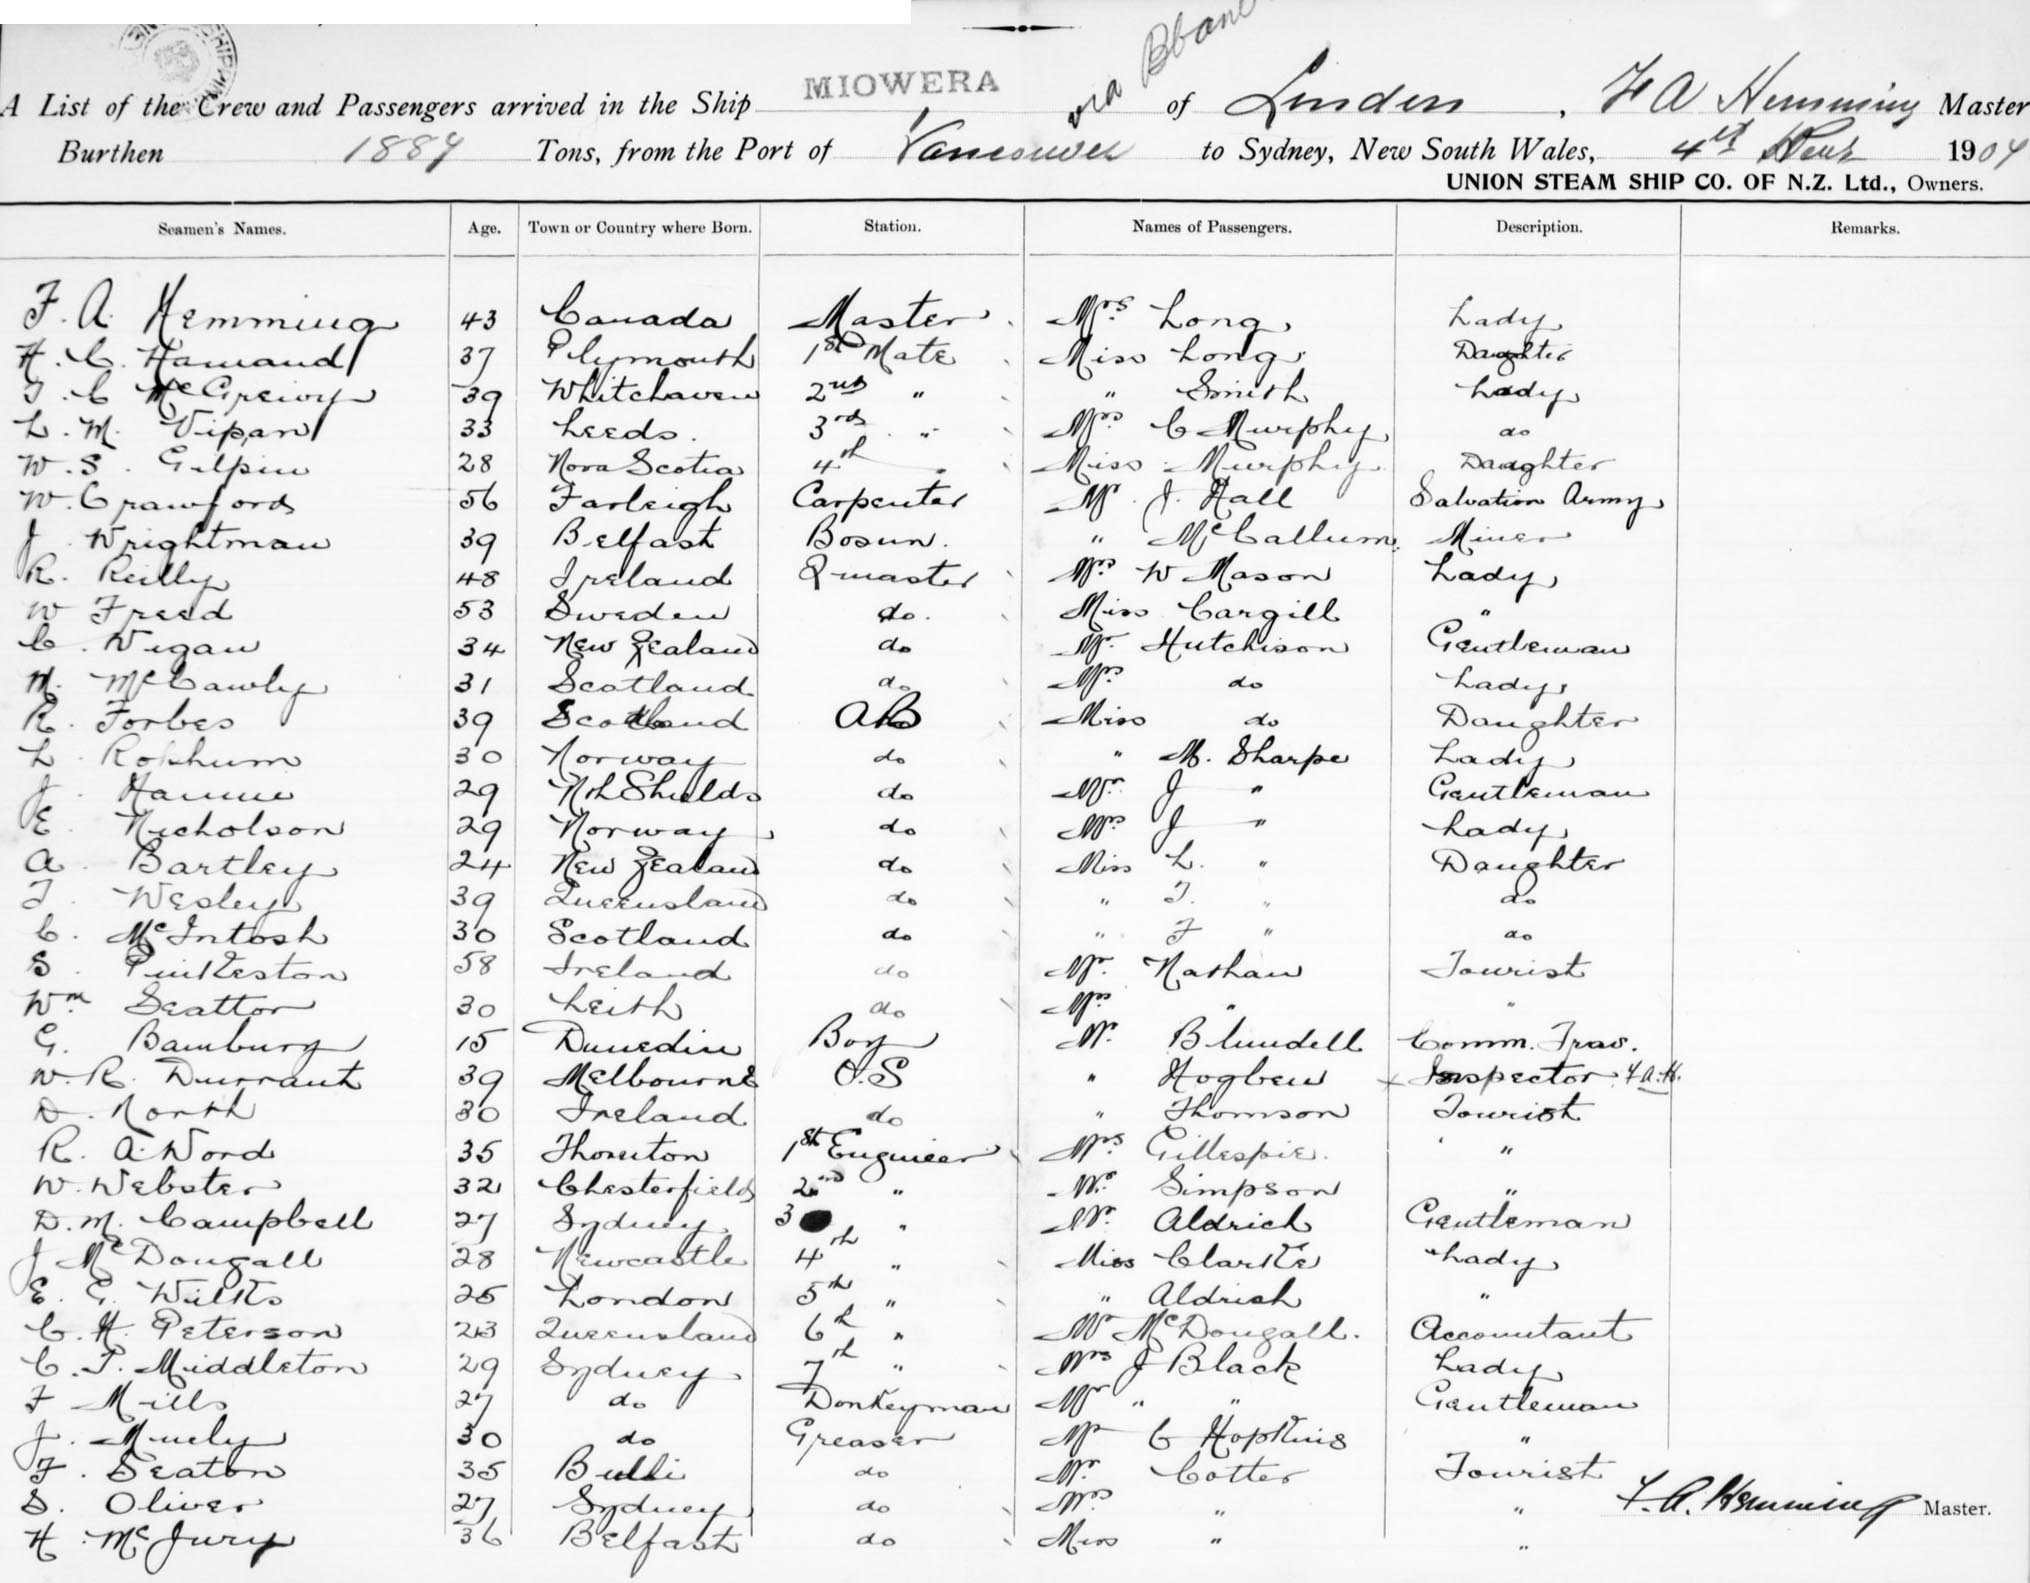 via
MIOWERA
A List of the Crew and Passengers arrived in the Ship MIOWERA of London, F A Hemming Master
Burthen 1889 Tons, from the Port of Vancouver to Sydney, New South Wales, 4th 1904
UNION STEAM SHIP CO. OF N.Z. Ltd., Owners.
Seamen's Names. Age. Town or Country where Born. Station. Names of Passengers. Description. Remarks.
F. A. Hemming 43 Canada Master Mrs Long Lady
H. C. Hamand 37 Plymouth 1st Mate Miss Long Daughter
T. C McGreivy 39 Whitehaven 2nd " " Smith Lady
L. M. Vipan 33 Leeds. 3rd " Mrs C Murphy do
W. S. Gilpin 28 Nova Scotia 4th " Miss Murphy Daughter
W. Crawford 56 Farleigh Carpenter Mr J. Hall Salvation Army
J Wrightman 39 Belfast Bosun. " McCallum Miner
R. Reilly 48 Ireland Qmaster Mrs W Mason Lady
W Freed 53 Sweden do. Miss Cargill "
C. Wigan 34 New Zealand do Mr. Hutchison Gentleman
M. McCawly 31 Scotland do Mrs do Lady
R. Forbes 39 Scotland AB Miss do Daughter
L. 30 Norway do " M. Sharpe Lady
J. 29 Nth Shields do Mr. J " Gentleman
E. Nicholson 29 Norway do Mrs J " Lady
A. Bartley 24 New Zealand do Miss L. " Daughter
T. Wesley 39 Queensland do " T. " do
C. McIntosh 30 Scotland do " F " do
S. Pinkeston 58 Ireland do Mr. Nathan Tourist
Wm Seattor 30 Leith do Mrs " "
G. Bamburg 15 Dunedin Boy Mr. Blundell Comm. Trav.
W. R. Durrant 39 Melbourne O.S " Hogben x Inspector F.A.H.
D. North 30 Ireland do " Thomson Tourist
R. A. Word 35 Thornton 1st Engineer Mrs Gillespie. "
W. Webster 32 Chesterfield 2nd " Mr. Simpson "
D. M. Campbell 27 Sydney 3 " Mr. Aldrich Gentleman
J McDougall 28 Newcastle 4th " Miss Clarke Lady
E. G. Wilks 25 London 5th " " Aldrich "
C. H. Peterson 23 Queensland 6th " Mr McDougall. Accountant
C. T. Middleton 29 Sydney 7th " Mrs J Black Lady
F Mills 27 do Donkeyman Mr " " Gentleman
J. 30 do Greaser Mr C Hopkins "
F. Seaton 35 Bulli do Mr. Cotter Tourist
S. Oliver 27 Sydney do Mrs " "
F. A. Hemming Master.
H. McJury 36 Belfast do Miss " "